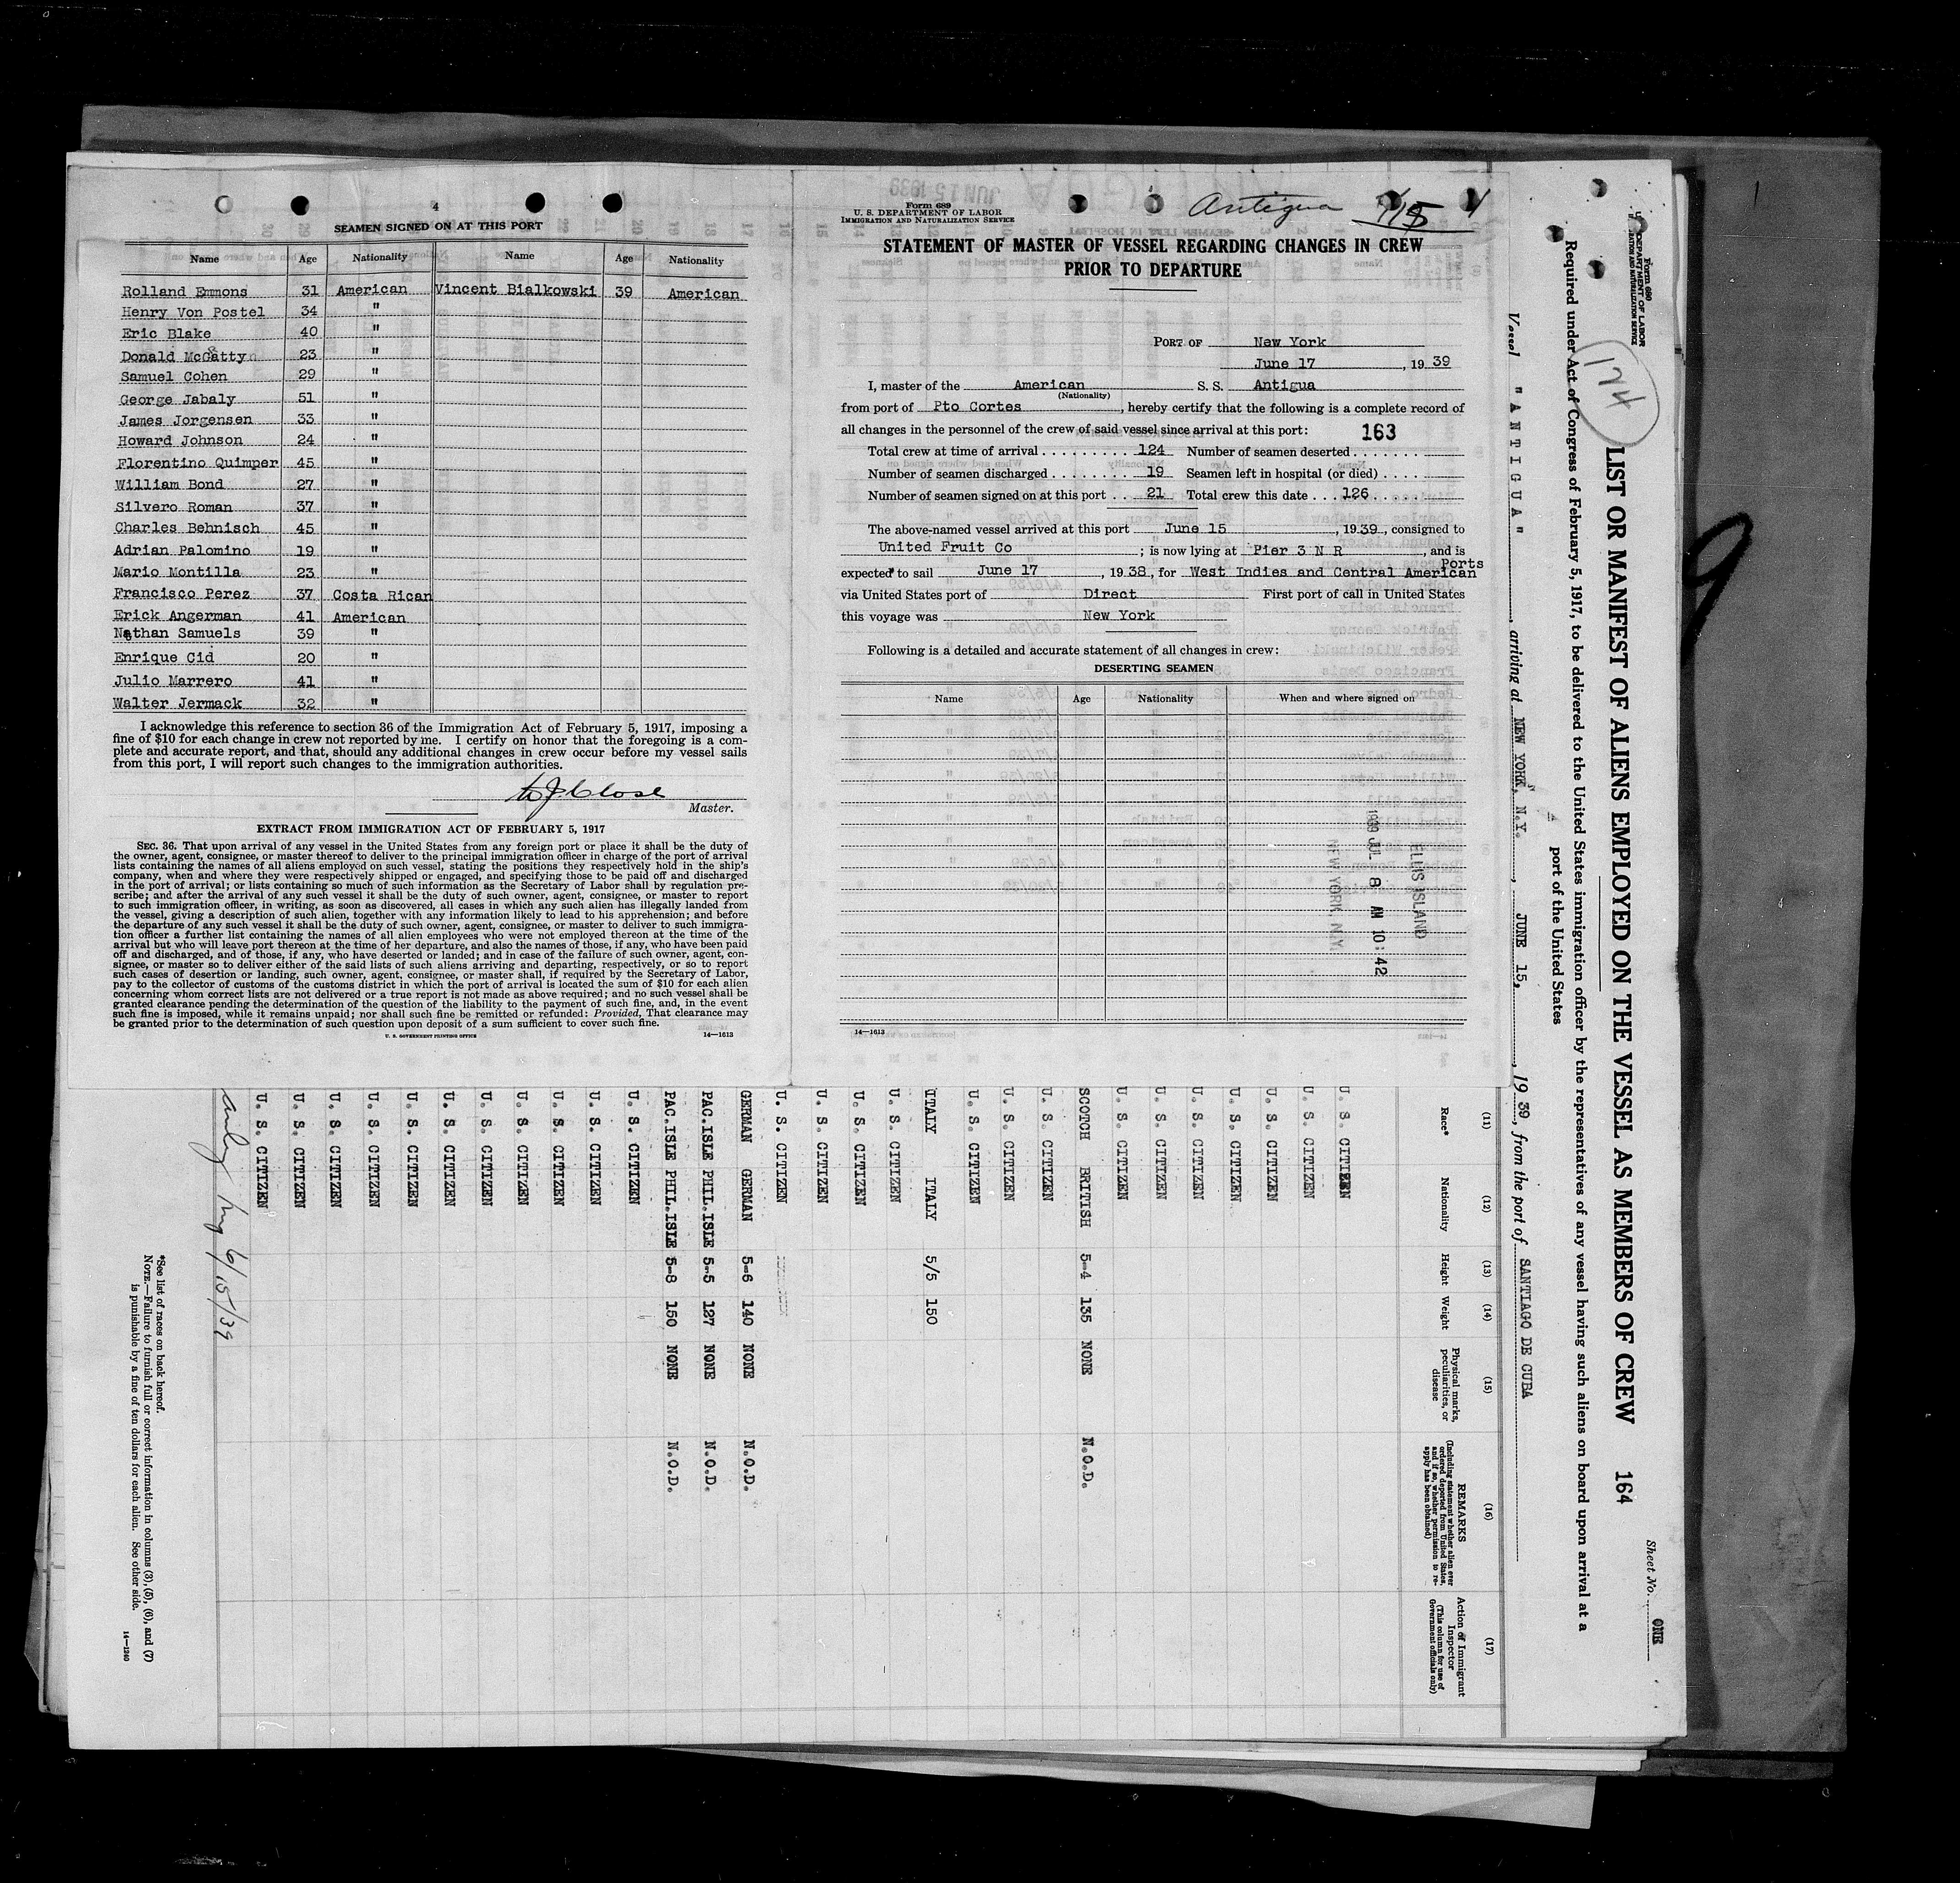 4
SEAMEN SIGNED ON AT THIS PORT
Name Age Nationality Name Age Nationality
Rolland Emmons 31 American Vincent Bialkowski 39 American
Henry Von Postel 34 "
Eric Blake 40 "
Donald McGatty 23 "
Samuel Cohen 29 "
George Jabaly 51 "
James Jorgensen 33 "
Howard Johnson 24 "
Florentino Quimper 45 "
William Bond 27 "
Silvero Roman 37 "
Charles Behnisch 45 "
Adrian Palomino 19 "
Mario Montilla 23 "
Francisco Perez 37 Costa Rican
Erick Angerman 41 American
Nathan Samuels 39 "
Enrique Cid 20 "
Julio Marrero 41 "
Walter Jermack 32 "
I acknowledge this reference to section 36 of the Immigration Act of February 5, 1917, imposing a
fine of $10 for each change in crew not reported by me. I certify on honor that the foregoing is a com-
plete and accurate report, and that, should any additional changes in crew occur before my vessel sails
from this port, I will report such changes to the immigration authorities.
W J Close
Master.
EXTRACT FROM IMMIGRATION ACT OF FEBRUARY 5, 1917
SEC. 36. That upon arrival of any vessel in the United States from any foreign port or place it shall be the duty of
the owner, agent, consignee, or master thereof to deliver to the principal immigration officer in charge of the port of arrival
lists containing the names of all aliens employed on such vessel, stating the positions they respectively hold in the ship's
company, when and where they were respectively shipped or engaged, and specifying those to be paid off and discharged
in the port of arrival; or lists containing so much of such information as the Secretary of Labor shall by regulation pre-
scribe; and after the arrival of any such vessel it shall be the duty of such owner, agent, consignee, or master to report
to such immigration officer, in writing, as soon as discovered, all cases in which any such alien has illegally landed from
the vessel, giving a description of such alien, together with any information likely to lead to his apprehension; and before
the departure of any such vessel it shall be the duty of such owner, agent, consignee, or master to deliver to such immigra-
tion officer a further list containing the names of all alien employees who were not employed thereon at the time of the
arrival but who will leave port thereon at the time of her departure, and also the names of those, if any, who have been paid
off and discharged, and of those, if any, who have deserted or landed; and in case of the failure of such owner, agent, con-
signee, or master so to deliver either of the said lists of such aliens arriving and departing, respectively, or so to report
such cases of desertion or landing, such owner, agent, consignee, or master shall, if required by the Secretary of Labor,
pay to the collector of customs of the customs district in which the port of arrival is located the sum of $10 for each alien
concerning whom correct lists are not delivered or a true report is not made as above required; and no such vessel shall be
granted clearance pending the determination of the question of the liability to the payment of such fine, and, in the event
such fine is imposed, while it remains unpaid; nor shall such fine be remitted or refunded: Provided, That clearance may
be granted prior to the determination of such question upon deposit of a sum sufficient to cover such fine.
U. S. GOVERNMENT PRINTING OFFICE 14—1613
Form 689
U. S. DEPARTMENT OF LABOR
IMMIGRATION AND NATURALIZATION SERVICE
Antigua
STATEMENT OF MASTER OF VESSEL REGARDING CHANGES IN CREW
PRIOR TO DEPARTURE
PORT OF New York
June 17, 1939
I, master of the American S. S. Antigua
(Nationality)
from port of Pto Cortes, hereby certify that the following is a complete record of
all changes in the personnel of the crew of said vessel since arrival at this port: 163
Total crew at time of arrival 124 Number of seamen deserted
Number of seamen discharged 19 Seamen left in hospital (or died)
Number of seamen signed on at this port 21 Total crew this date 126
The above-named vessel arrived at this port June 15, 1939, consigned to
United Fruit Co; is now lying at Pier 3 N R, and is
expected to sail June 17, 1938, for West Indies and Central American Ports
via United States port of Direct First port of call in United States
this voyage was New York
Following is a detailed and accurate statement of all changes in crew:
DESERTING SEAMEN
Name Age Nationality When and where signed on
1939 JUL 8 AM 10:42
ELLIS ISLAND
NEW YORK, N.Y.
14—1613
Form 680
DEPARTMENT OF LABOR
174
LIST OR MANIFEST OF ALIENS EMPLOYED ON THE VESSEL AS MEMBERS OF CREW 164
Sheet No. ONE
Required under Act of Congress of February 5, 1917, to be delivered to the United States immigration officer by the representatives of any vessel having such aliens on board upon arrival at a
port of the United States
Vessel "ANTIGUA", arriving at NEW YORK, N.Y., JUNE 15, 1939, from the port of SANTIAGO DE CUBA
(11) (12) (13) (14) (15) (16) (17)
Race* Nationality Height Weight Physical marks, peculiarities, or disease
REMARKS
(Including statement whether alien ever ordered deported from United States, and if so, whether permission to re-apply has been obtained)
Action of Immigrant Inspector
(This column for use of Government officials only)
U. S. CITIZEN
U. S. CITIZEN
U. S. CITIZEN
U. S. CITIZEN
U. S. CITIZEN
U. S. CITIZEN
U. S. CITIZEN
SCOTCH BRITISH 5-4 135 NONE N.O.D.
U. S. CITIZEN
U. S. CITIZEN
U. S. CITIZEN
ITALY ITALY 5/5 150
U. S. CITIZEN
U. S. CITIZEN
U. S. CITIZEN
U. S. CITIZEN
GERMAN GERMAN 5-6 140 NONE N.O.D.
PAC.ISLE PHIL.ISLE 5-5 127 NONE N.O.D.
PAC.ISLE PHIL.ISLE 5-8 150 NONE N.O.D.
U. S. CITIZEN
U. S. CITIZEN
U. S. CITIZEN
U. S. CITIZEN
U. S. CITIZEN
U. S. CITIZEN
U. S. CITIZEN
U. S. CITIZEN
U. S. CITIZEN
U. S. CITIZEN
U. S. CITIZEN
6/15/39
*See list of races on back hereof.
NOTE.—Failure to furnish full or correct information in columns (3), (5), (6), and (7)
is punishable by a fine of ten dollars for each alien. See other side.
14—1240